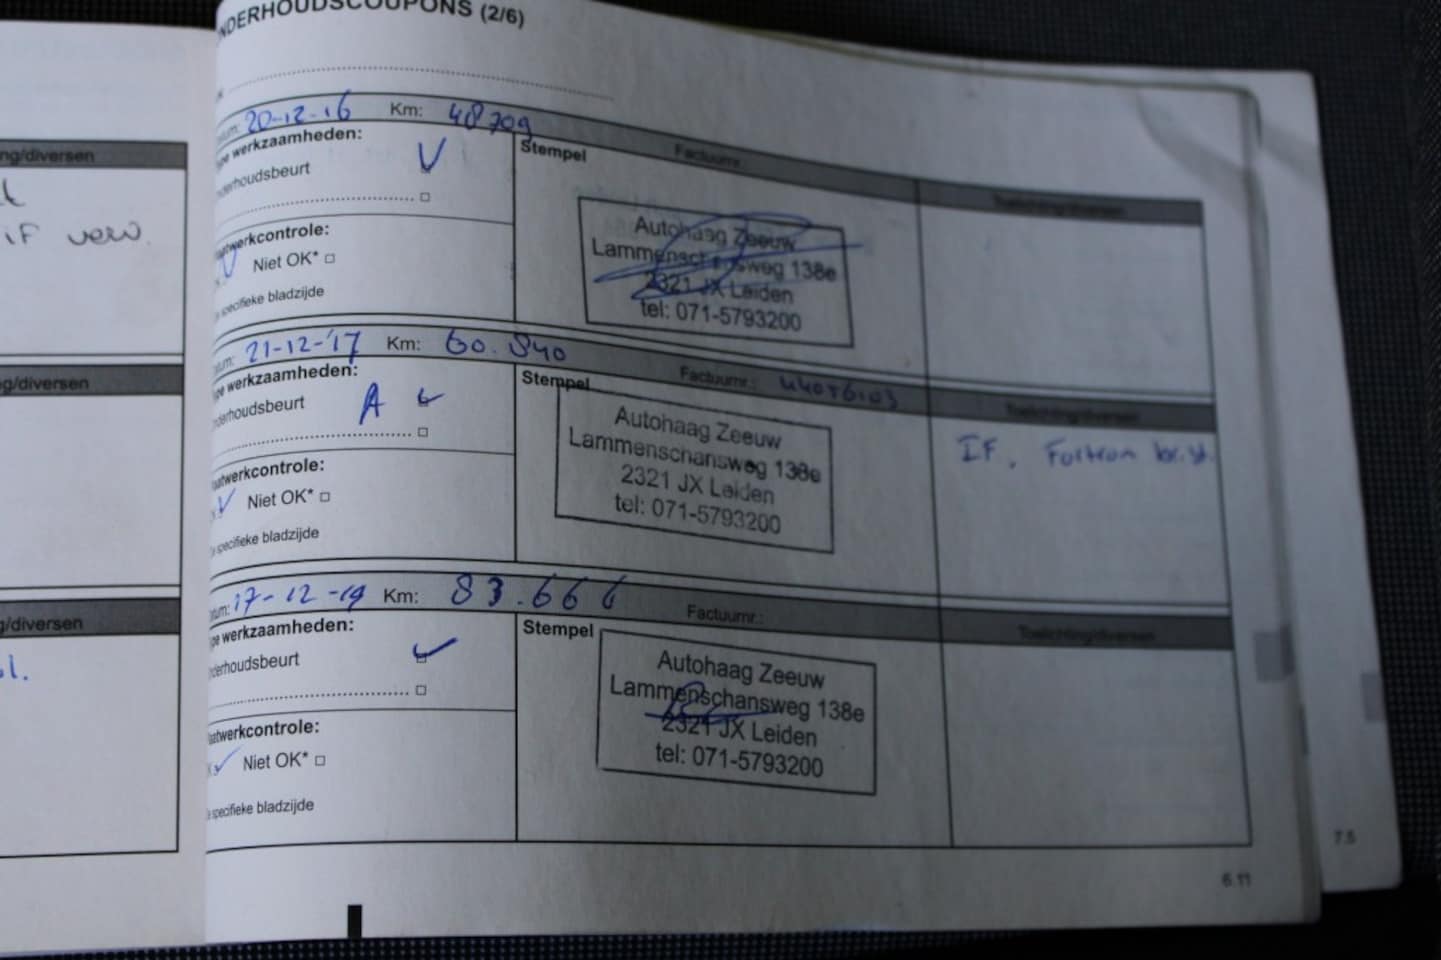 NDERHOUDSCOUPONS (2/6)
ng/diversen
IF verv.
g/diversen
g/diversen
20-12-16 Km: 48 709
Factuurnr.:
Toelichting/diversen
pe werkzaamheden:
nderhoudsbeurt V
Stempel
Autohaag Zeeuw
Lammenschansweg 138e
2321 JX Leiden
tel: 071-5793200
aatwerkcontrole:
Niet OK*
specifieke bladzijde
tum: 21-12-'17 Km: 60.840
Factuurnr.:
Toelichting/diversen
pe werkzaamheden:
nderhoudsbeurt A
Stempel
Autohaag Zeeuw
Lammenschansweg 138e
2321 JX Leiden
tel: 071-5793200
IF.
aatwerkcontrole:
Niet OK*
specifieke bladzijde
tum: 17-12-19 Km: 83.666
Factuurnr.:
Toelichting/diversen
pe werkzaamheden:
nderhoudsbeurt
Stempel
Autohaag Zeeuw
Lammenschansweg 138e
2321 JX Leiden
tel: 071-5793200
aatwerkcontrole:
Niet OK*
specifieke bladzijde
6.11
7.5